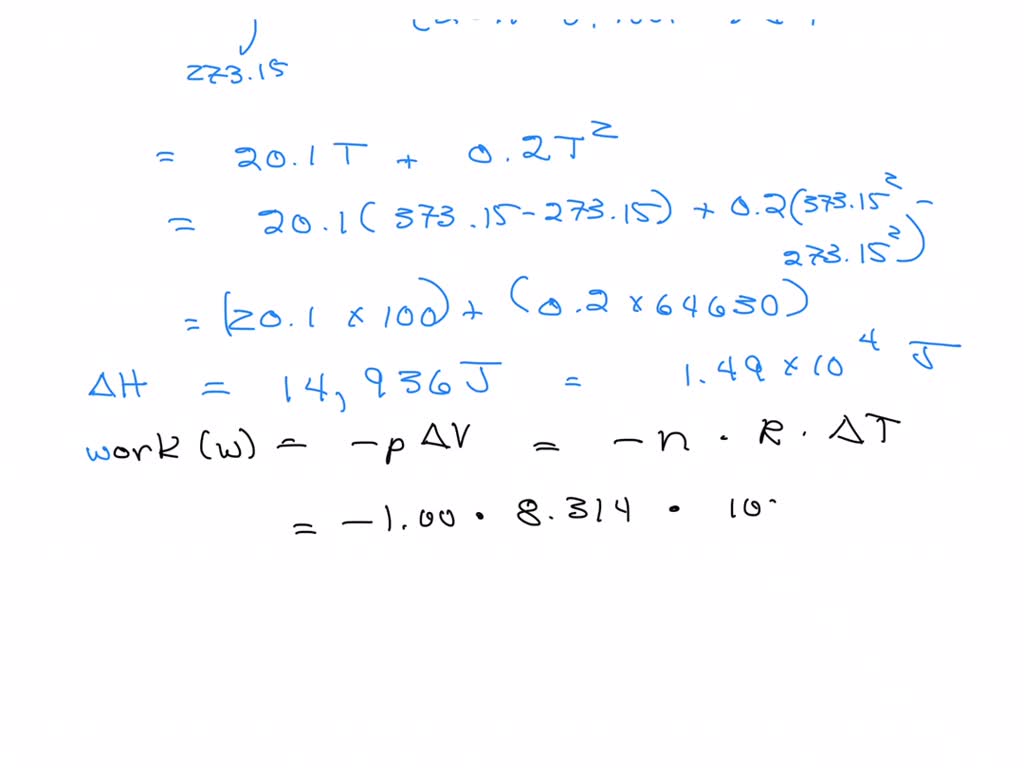 273.15
= 20.1 T + 0.2T²
= 20.1 ( 373.15 - 273.15 ) + 0.2 ( 373.15² -
273.15² )
= (20.1 × 100) + ( 0.2 × 64630 )
ΔH = 14,936 J = 1.49 × 10⁴ J
work (w) = -p ΔV = - n . R . ΔT
= - 1.00 . 8.314 .